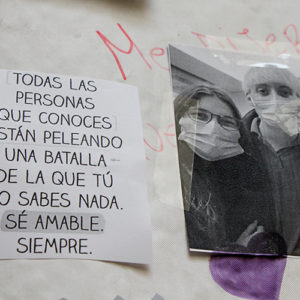 TODAS LAS
PERSONAS
QUE CONOCES
ESTÁN PELEANDO
UNA BATALLA
DE LA QUE TÚ
NO SABES NADA.
SÉ AMABLE.
SIEMPRE.